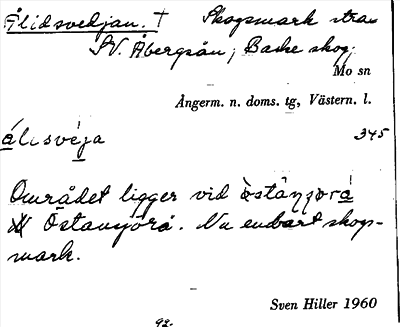 Ålidsvedjan. † Skogsmark strax
SV. Åbergsån; Backe skog.
Mo sn
Ångerm. n. doms. tg, Västern. l.
álisvéja 345
Området ligger vid
Östansjörå. Nu enbart skogs-
mark.
Sven Hiller 1960
92.